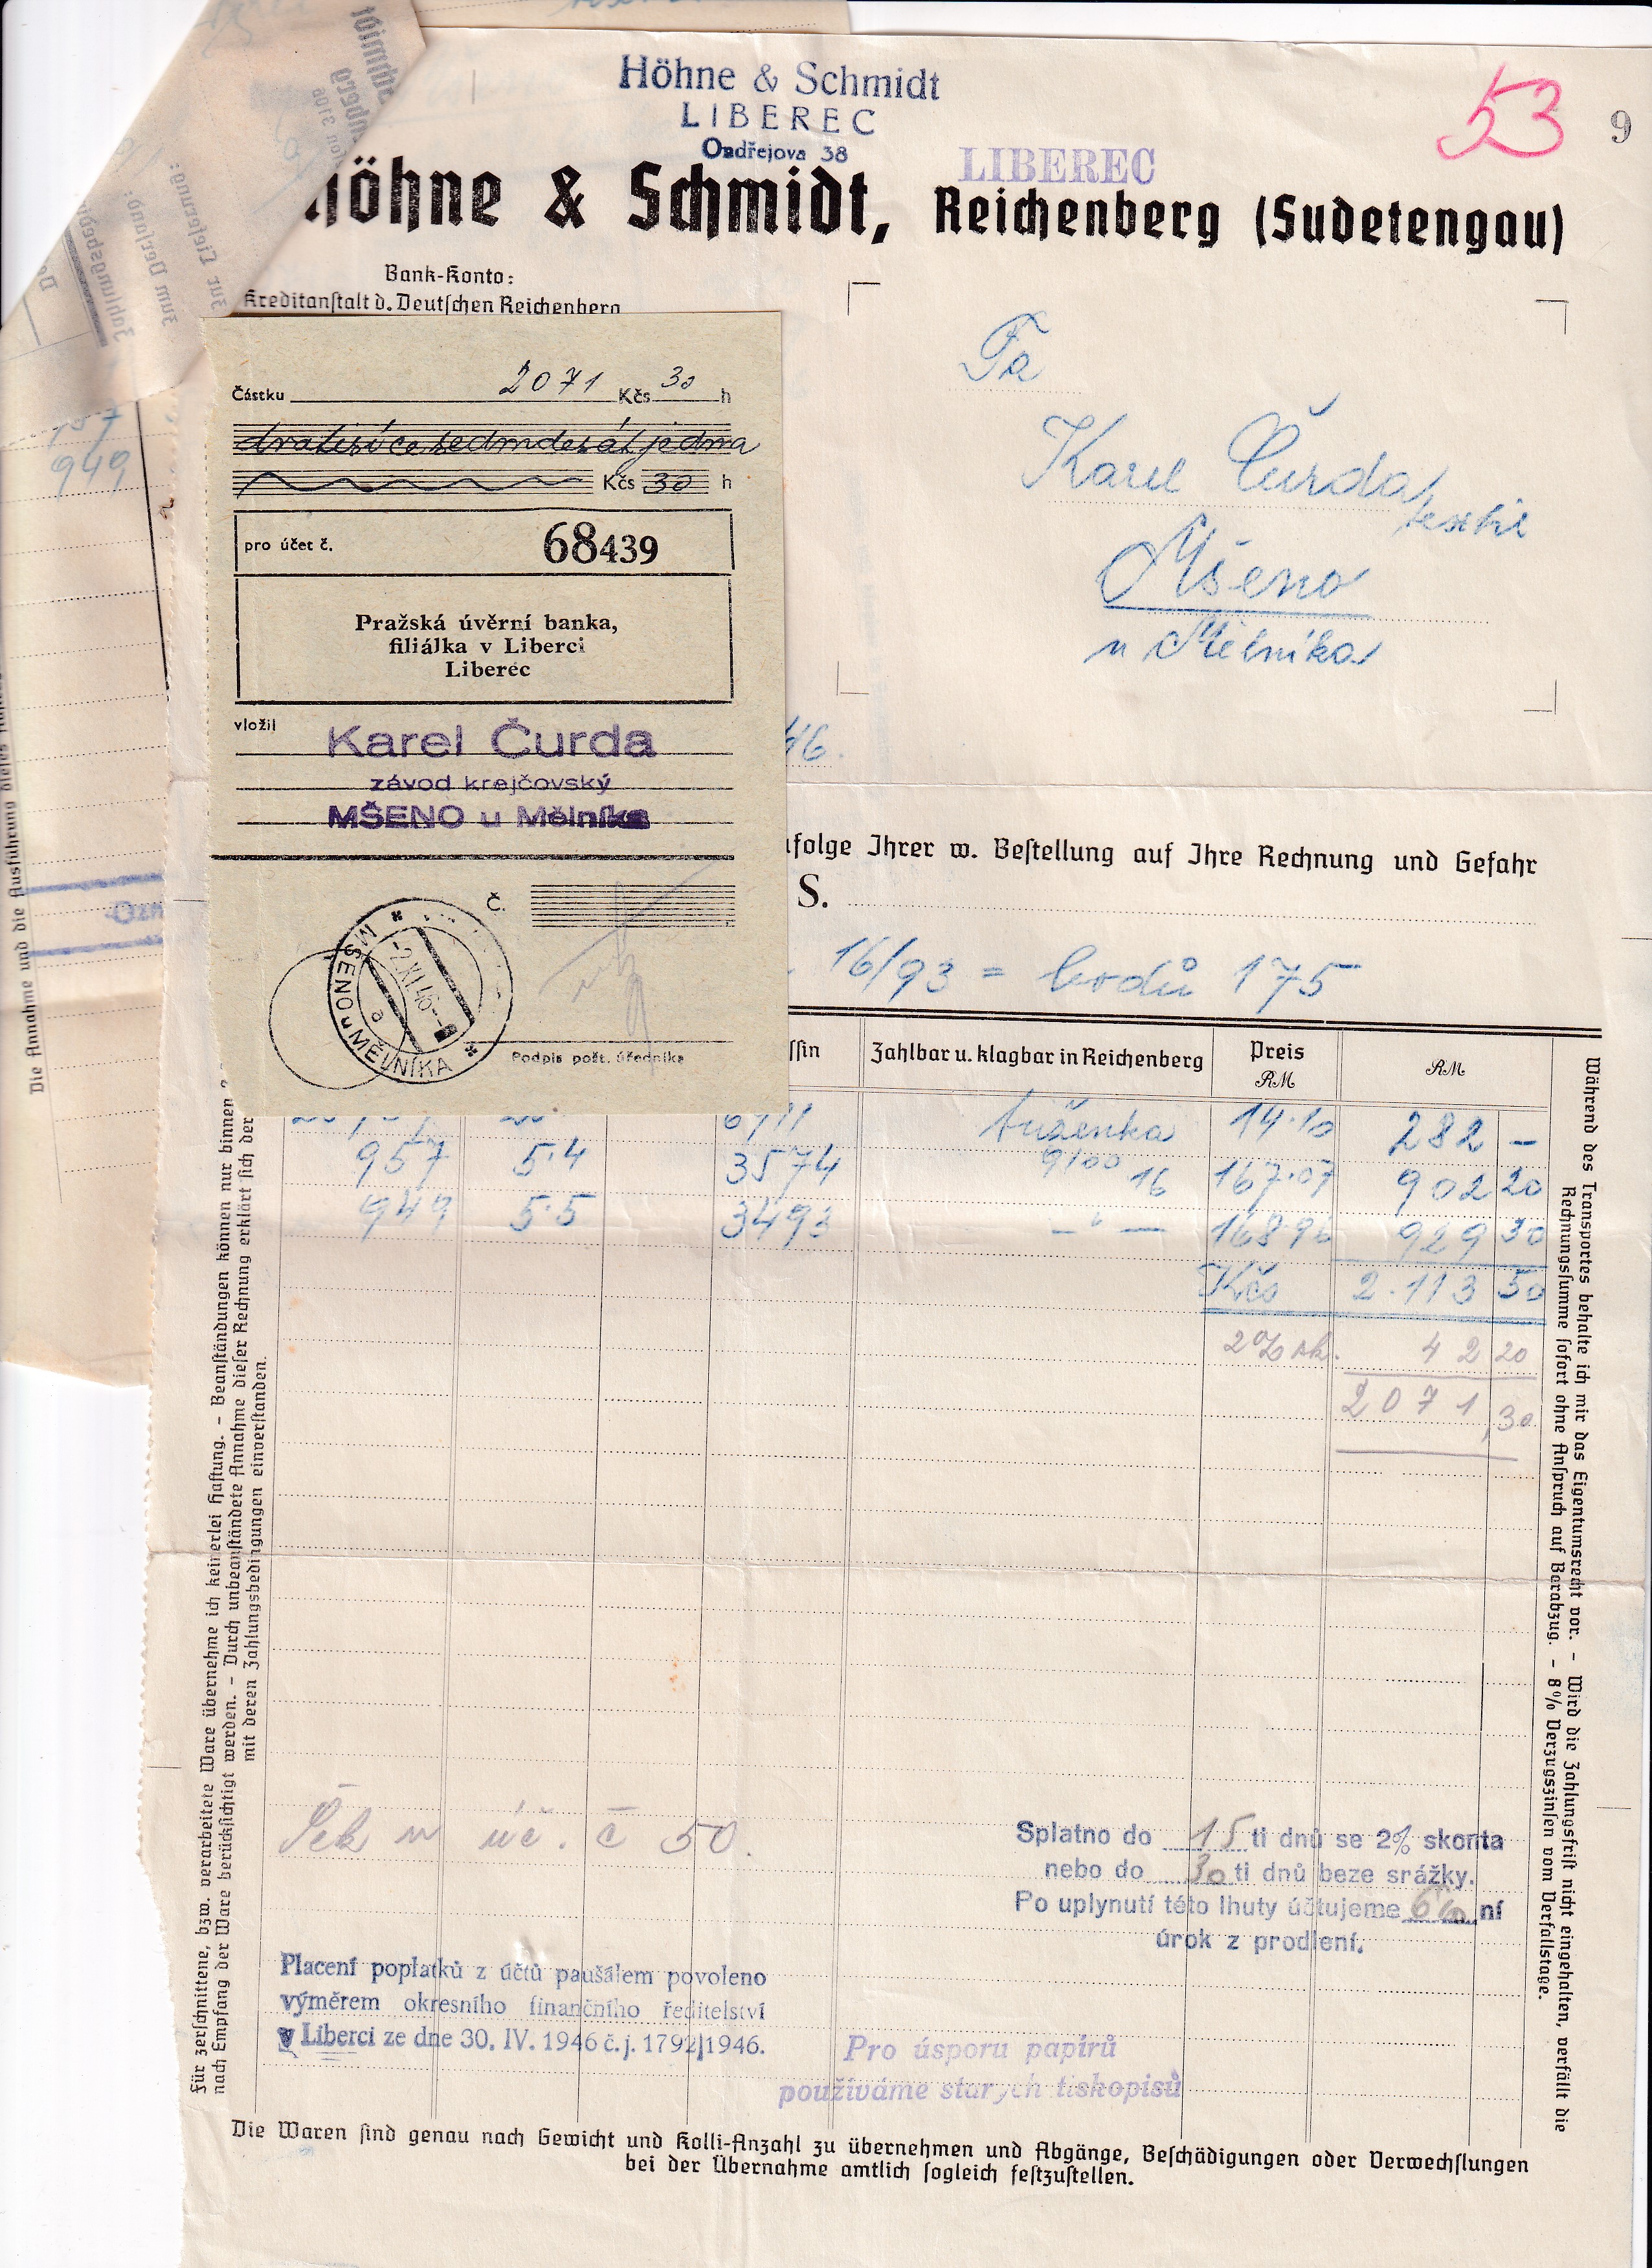 Höhne & Schmidt
LIBEREC
Ondřejova 38
53
9
LIBEREC
Höhne & Schmidt, Reichenberg (Sudetengau)
Bank-Konto:
Kreditanſtalt d. Deutſchen Reichenberg
Fa
Karel Čurda,
textil
Mšeno
u Mělníka
46.
Částku 2071 Kčs 30 h
dvatisícesedmdesátjedna
Kčs 30 h
pro účet č. 68439
Pražská úvěrní banka,
filiálka v Liberci
Liberec
vložil
Karel Čurda
závod krejčovský
MŠENO u Mělníka
Č.
MŠENO u MĚLNÍKA
-2.XI.46-
a
Podpis pošt. úředníka
Ihrer w. Beſtellung auf Ihre Rechnung und Gefahr
S.
16/93 = bodů 175
Zahlbar u. klagbar in Reichenberg Preis RM RM
tuženka 14.10 282 –
957 5.4 3574 9100 16 167.07 902 20
949 5.5 3493 – " – 168.96 929 30
Kčs 2.113 50
2% sk. 42 20
2071,30
Šek úč. č 50.
Splatno do 15 ti dnů se 2% skonta
nebo do 30 ti dnů beze srážky.
Po uplynutí této lhuty účtujeme 6% ní
úrok z prodlení.
Placení poplatků z účtů paušálem povoleno
výměrem okresního finančního ředitelství
v Liberci ze dne 30. IV. 1946 č. j. 1792/1946.
Pro úsporu papírů
používáme starych tiskopisů
Die Waren ſind genau nach Gewicht und Kolli-Anzahl zu übernehmen und Abgänge, Beſchädigungen oder Verwechſlungen
bei der Übernahme amtlich ſogleich feſtzuſtellen.
Für zerſchnittene, bzw. verarbeitete Ware übernehme ich keinerlei Haftung. – Beanſtändungen können nur binnen
nach Empfang der Ware berückſichtigt werden. – Durch unbeanſtändete Annahme dieſer Rechnung erklärt ſich der
mit deren Zahlungsbedingungen einverſtanden.
Während des Transportes behalte ich mir das Eigentumsrecht vor. – Wird die Zahlungsfriſt nicht eingehalten, verfällt die
Rechnungsſumme ſofort ohne Anſpruch auf Barabzug. – 8% Verzugszinſen vom Verfallstage.
949
Die Annahme und die Ausführung dieſes